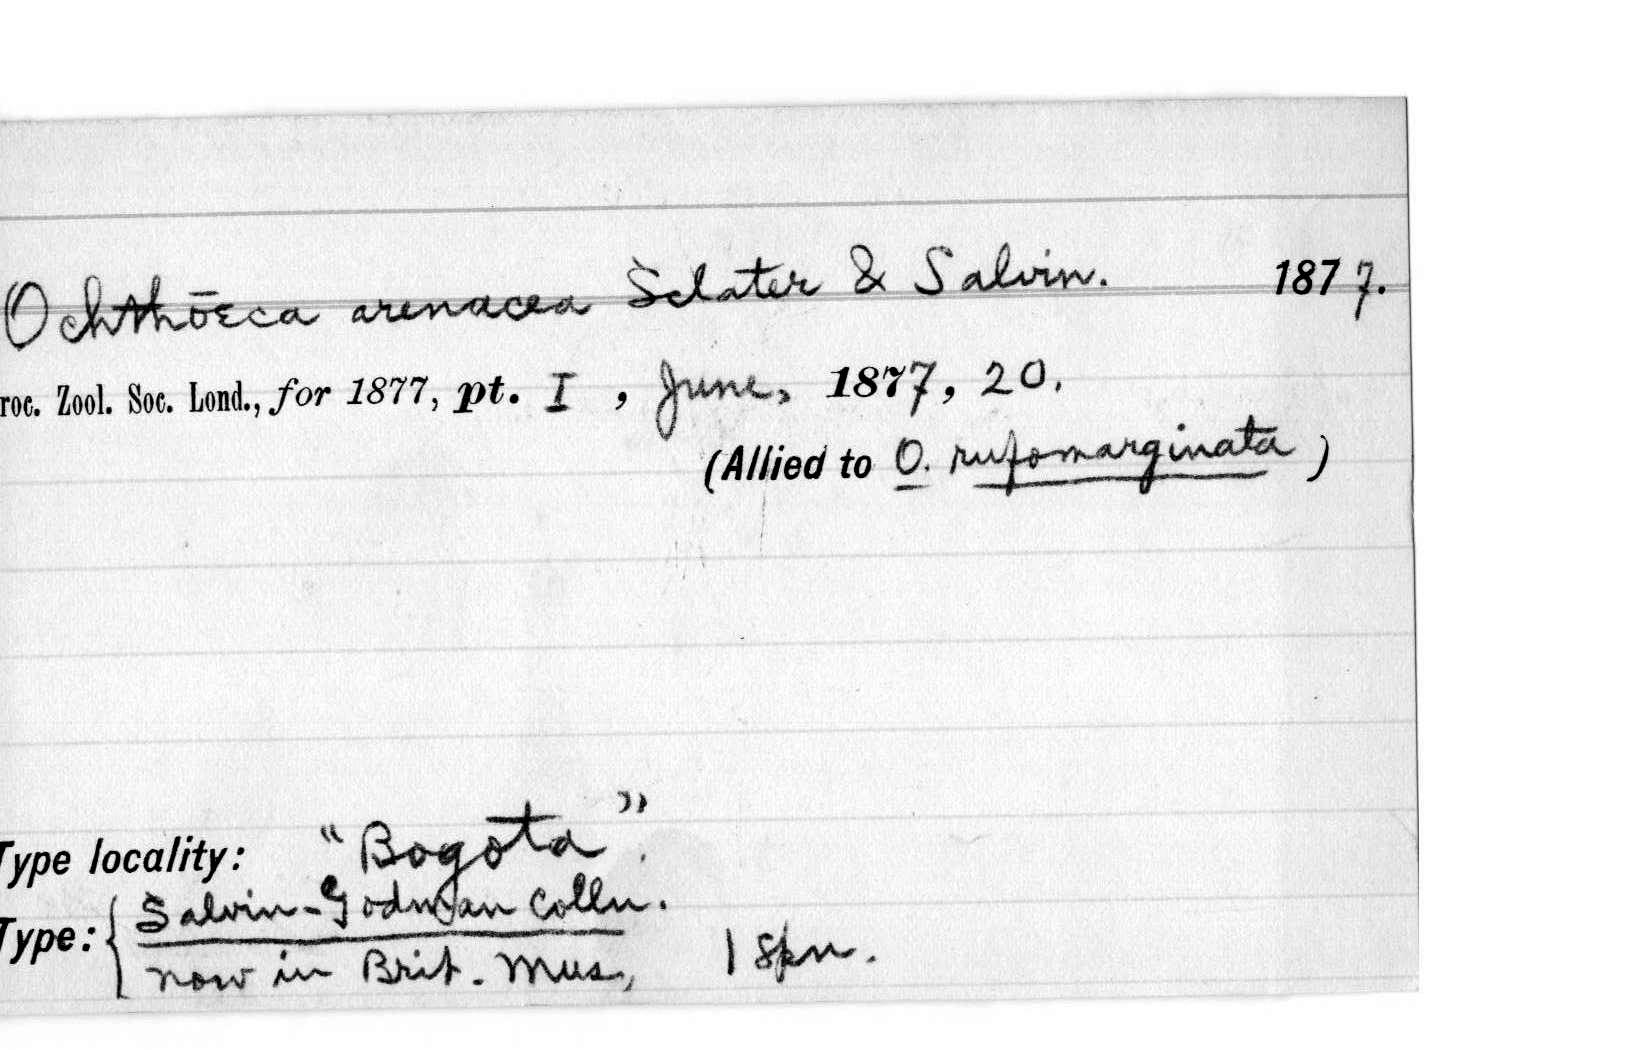 Ochthōeca arenacea Sclater & Salvin. 1877.
roc. Zool. Soc. Lond., for 1877, pt. I , June, 1877, 20.
(Allied to O. rufomarginata)
Type locality: "Bogota".
Type: { Salvin-Godman Colln.
now in Brit. Mus., 1 spn.